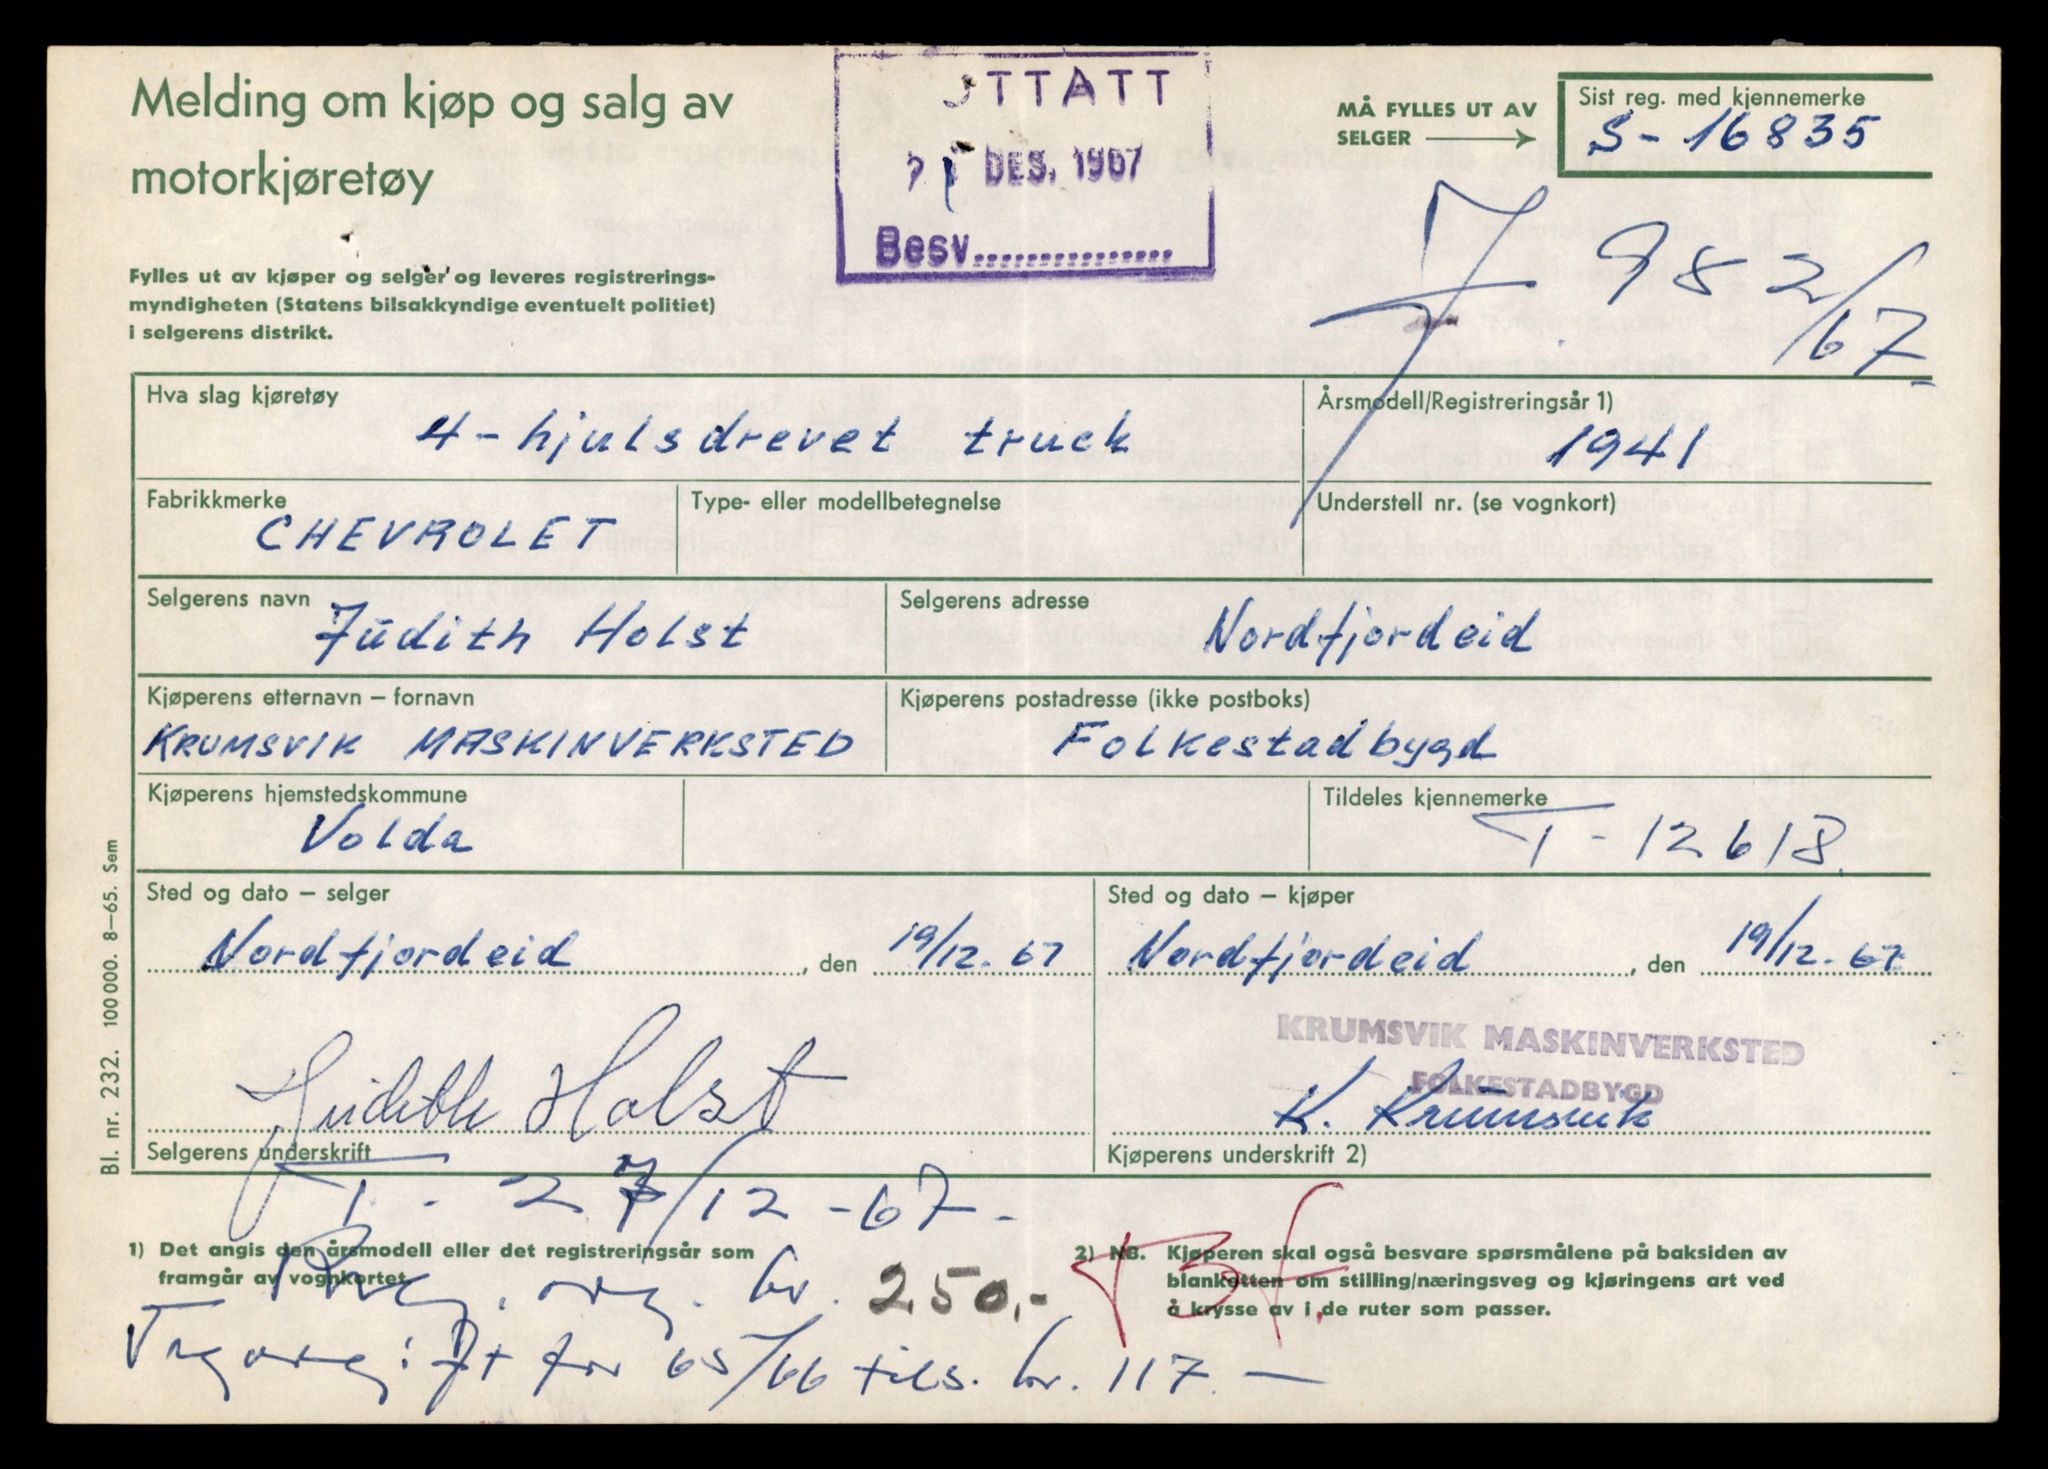 Melding om kjøp og salg av
motorkjøretøy
TTATT
DES. 1967
Besv...............
MÅ FYLLES UT AV
SELGER
Sist reg. med kjennemerke
S - 16835
982/67
Fylles ut av kjøper og selger og leveres registrerings-
myndigheten (Statens bilsakkyndige eventuelt politiet)
i selgerens distrikt.
Hva slag kjøretøy
4 - hjulsdrevet truck
Årsmodell/Registreringsår 1)
1941
Fabrikkmerke
CHEVROLET
Type- eller modellbetegnelse
Understell nr. (se vognkort)
Selgerens navn
Judith Holst
Selgerens adresse
Nordfjordeid
Kjøperens etternavn – fornavn
KRUMSVIK MASKINVERKSTED
Kjøperens postadresse (ikke postboks)
Folkestadbygd
Kjøperens hjemstedskommune
Volda
Tildeles kjennemerke
T - 12618
Sted og dato – selger
Nordfjordeid, den 19/12. 67
Sted og dato – kjøper
Nordfjordeid, den 19/12. 67
Judith Holst
Selgerens underskrift
KRUMSVIK MASKINVERKSTED
FOLKESTADBYGD
K. Krumsvik
Kjøperens underskrift 2)
Bl. nr. 232. 100 000. 8–65. Sem
T - 27/12 - 67 -
1) Det angis den årsmodell eller det registreringsår som
framgår av vognkortet.
2) NB. Kjøperen skal også besvare spørsmålene på baksiden av
blanketten om stilling/næringsveg og kjøringens art ved
å krysse av i de ruter som passer.
Reg. avg. kr. 250,-
for 65/66 tils. kr. 117. -